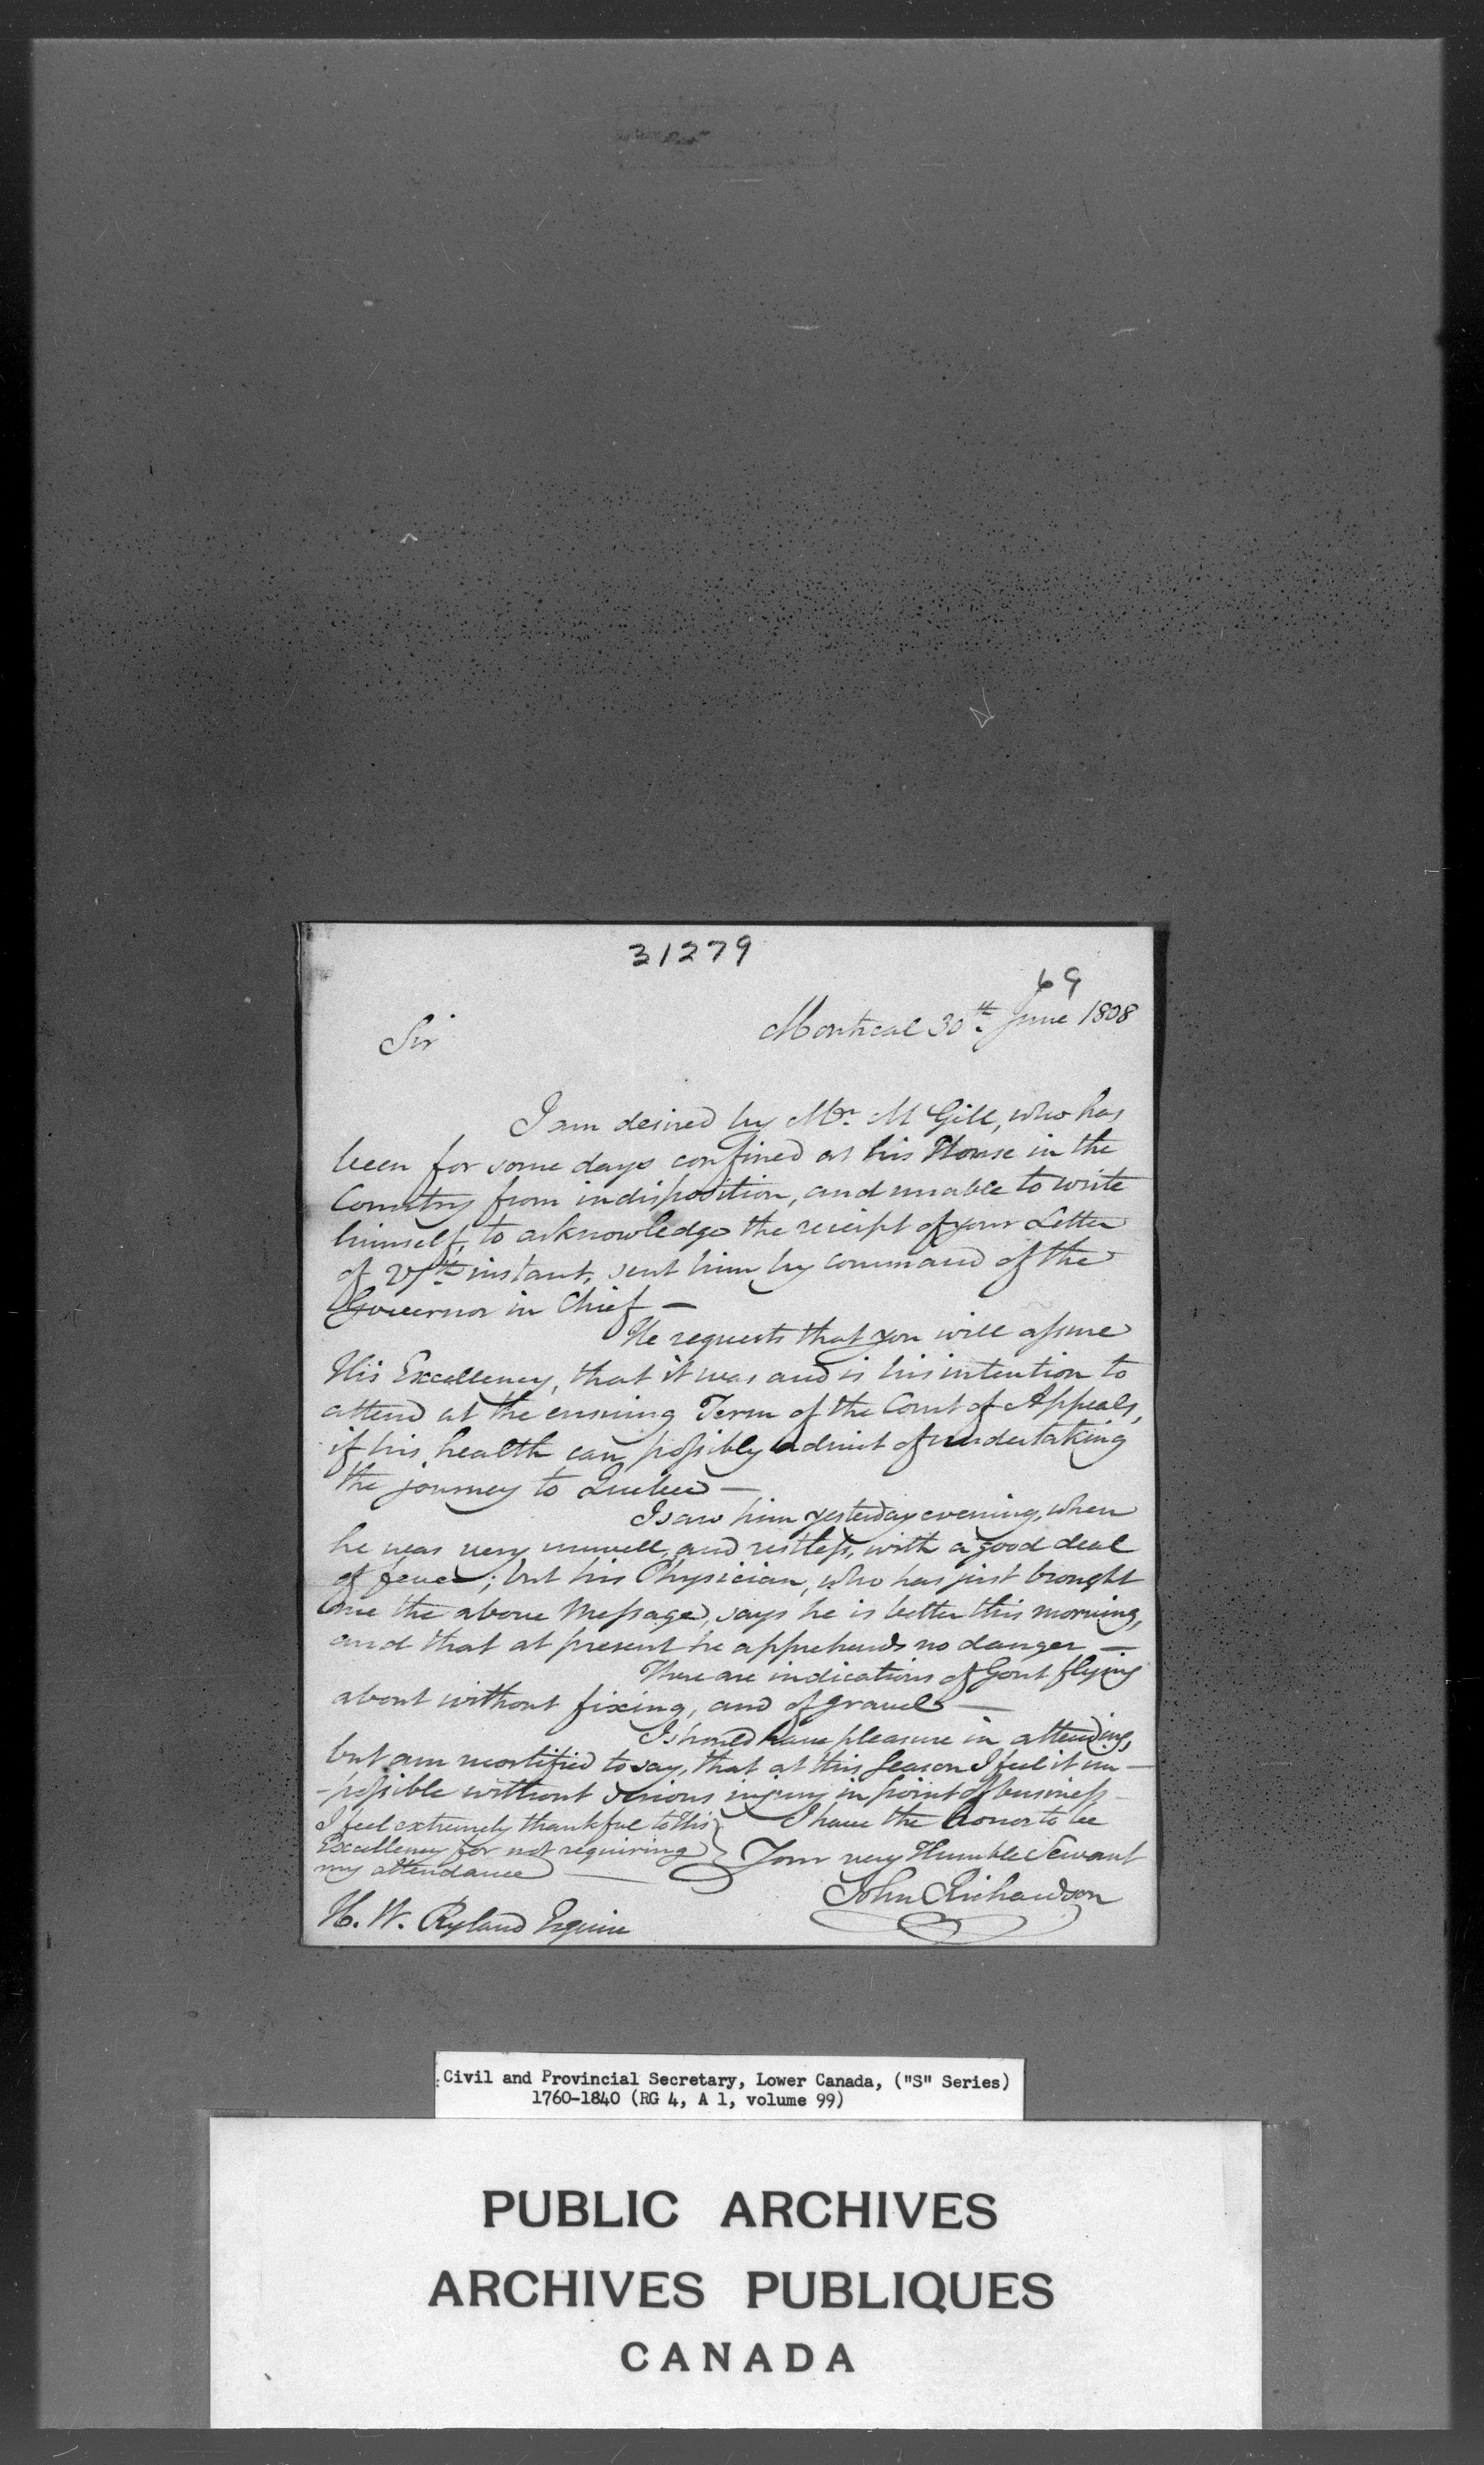 31279
69
Montreal 30th. June 1808
Sir
I am desired by Mr. McGill, who has
been for some days confined at his House in the
Country from indisposition, and unable to write
himself, to acknowledge the receipt of your Letter
of 27th instant, sent him by command of the
Governor in Chief —
He requests that you will assure
His Excellency, that it was and is his intention to
attend at the ensuing Term of the Court of Appeals,
if his health can possibly admit of undertaking
the journey to Quebec —
I saw him yesterday evening, when
he was very unwell, and restless, with a good deal
of fever; but his Physician, who has just brought
me the above Message, says he is better this morning,
and that at present he apprehends no danger —
There are indications of Gout flying
about without fixing, and of gravel —
I should have pleasure in attending,
but am mortified to say, that at this Season I feel it im—
-possible without serious injury in point of business —
I feel extremely thankful to His
Excellency for not requiring
my attendance —
I have the honor to be
Your very Humble Servant
John Richardson
H. W. Ryland Esquire
Civil and Provincial Secretary, Lower Canada, ("S" Series)
1760-1840 (RG 4, A 1, volume 99)
PUBLIC ARCHIVES
ARCHIVES PUBLIQUES
CANADA